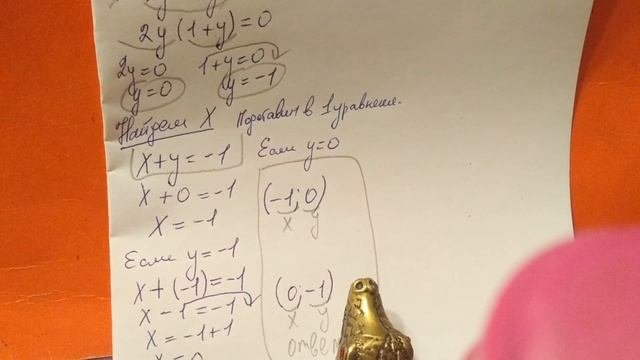 2y (1+y) = 0
2y = 0 1+y=0
y=0 y=-1
Найдем X Подставим в 1 уравнение.
X+y = -1 Если y=0
X + 0 = -1 (-1; 0)
X = -1 x y
Если y = -1
X + (-1) = -1 (0; -1)
X - 1 = -1 x y
X = -1+1